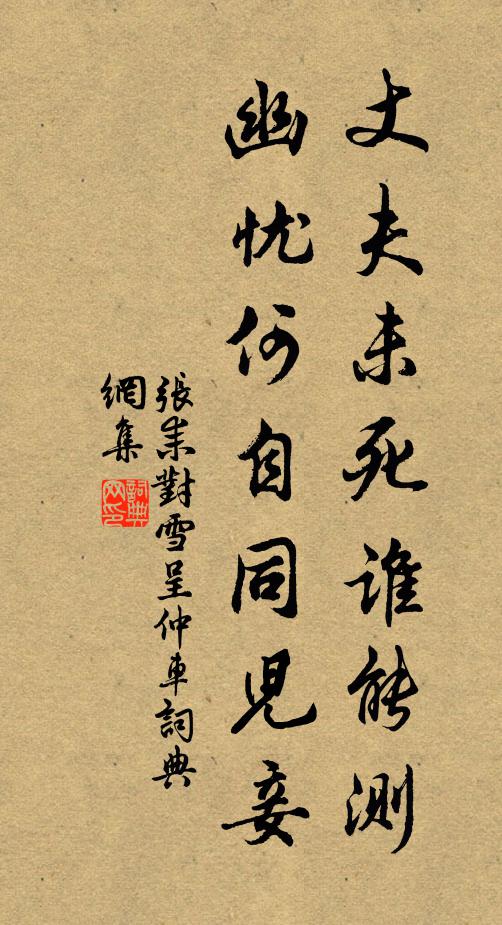 丈夫未死谁能测
幽忧何自同児妾
張耒對雪呈仲車詞典
網集
詞典
网印